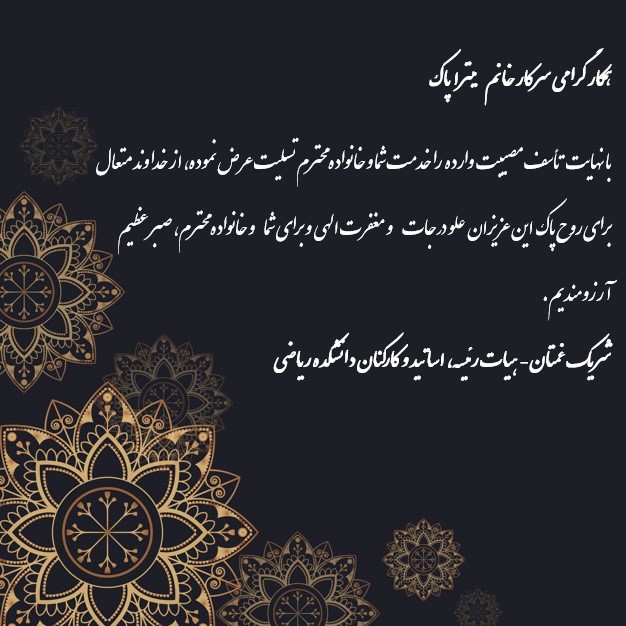 همکار گرامی سرکار خانم میترا پاک
با نهایت تأسف مصیبت وارده را خدمت شما و خانواده محترم تسلیت عرض نموده، از خداوند متعال
برای روح پاک این عزیزان علو درجات و مغفرت الهی و برای شما و خانواده محترم، صبر عظیم
آرزومندیم.
شریک غمتان - هیات رئیسه، اساتید و کارکنان دانشکده ریاضی